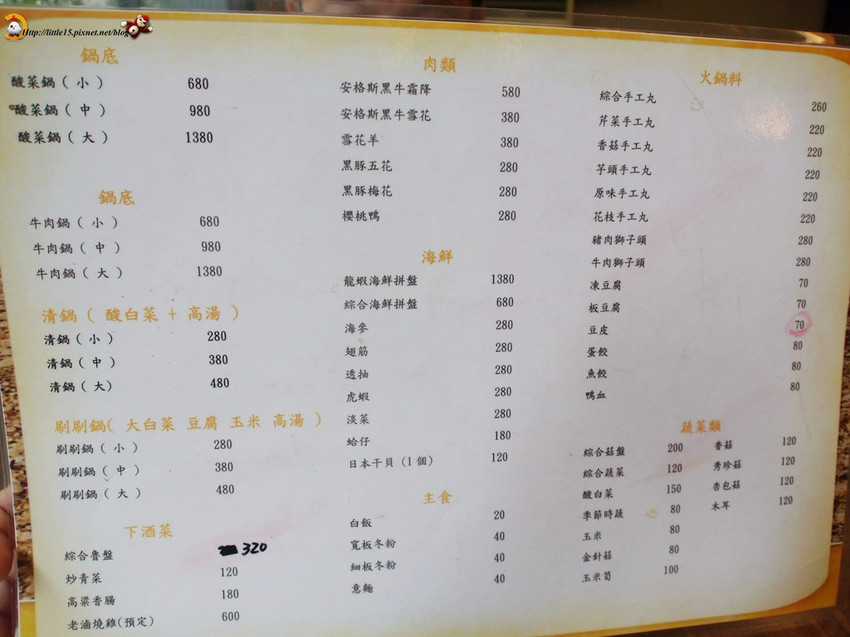 Http://little15.pixnet.net/blog
鍋底
酸菜鍋 ( 小 ) 680
酸菜鍋 ( 中 ) 980
酸菜鍋 ( 大 ) 1380
鍋底
牛肉鍋 ( 小 ) 680
牛肉鍋 ( 中 ) 980
牛肉鍋 ( 大 ) 1380
清鍋 ( 酸白菜 + 高湯 )
清鍋 ( 小 ) 280
清鍋 ( 中 ) 380
清鍋 ( 大 ) 480
刷刷鍋( 大白菜 豆腐 玉米 高湯 )
刷刷鍋 ( 小 ) 280
刷刷鍋 ( 中 ) 380
刷刷鍋 ( 大 ) 480
下酒菜
綜合魯盤 320
炒青菜 120
高粱香腸 180
老滷燒雞(預定) 600
肉類
安格斯黑牛霜降 580
安格斯黑牛雪花 380
雪花羊 380
黑豚五花 280
黑豚梅花 280
櫻桃鴨 280
海鮮
龍蝦海鮮拼盤 1380
綜合海鮮拼盤 680
海參 280
翅筋 280
透抽 280
虎蝦 280
淡菜 280
蛤仔 180
日本干貝 (1個) 120
主食
白飯 20
寬板冬粉 40
細板冬粉 40
意麵 40
火鍋料
綜合手工丸 260
芹菜手工丸 220
香菇手工丸 220
芋頭手工丸 220
原味手工丸 220
花枝手工丸 220
豬肉獅子頭 280
牛肉獅子頭 280
凍豆腐 70
板豆腐 70
豆皮 70
蛋餃 80
魚餃 80
鴨血 80
蔬菜類
綜合菇盤 200
綜合蔬菜 120
酸白菜 150
季節時蔬 80
玉米 80
金針菇 80
玉米筍 100
香菇 120
秀珍菇 120
杏包菇 120
木耳 120